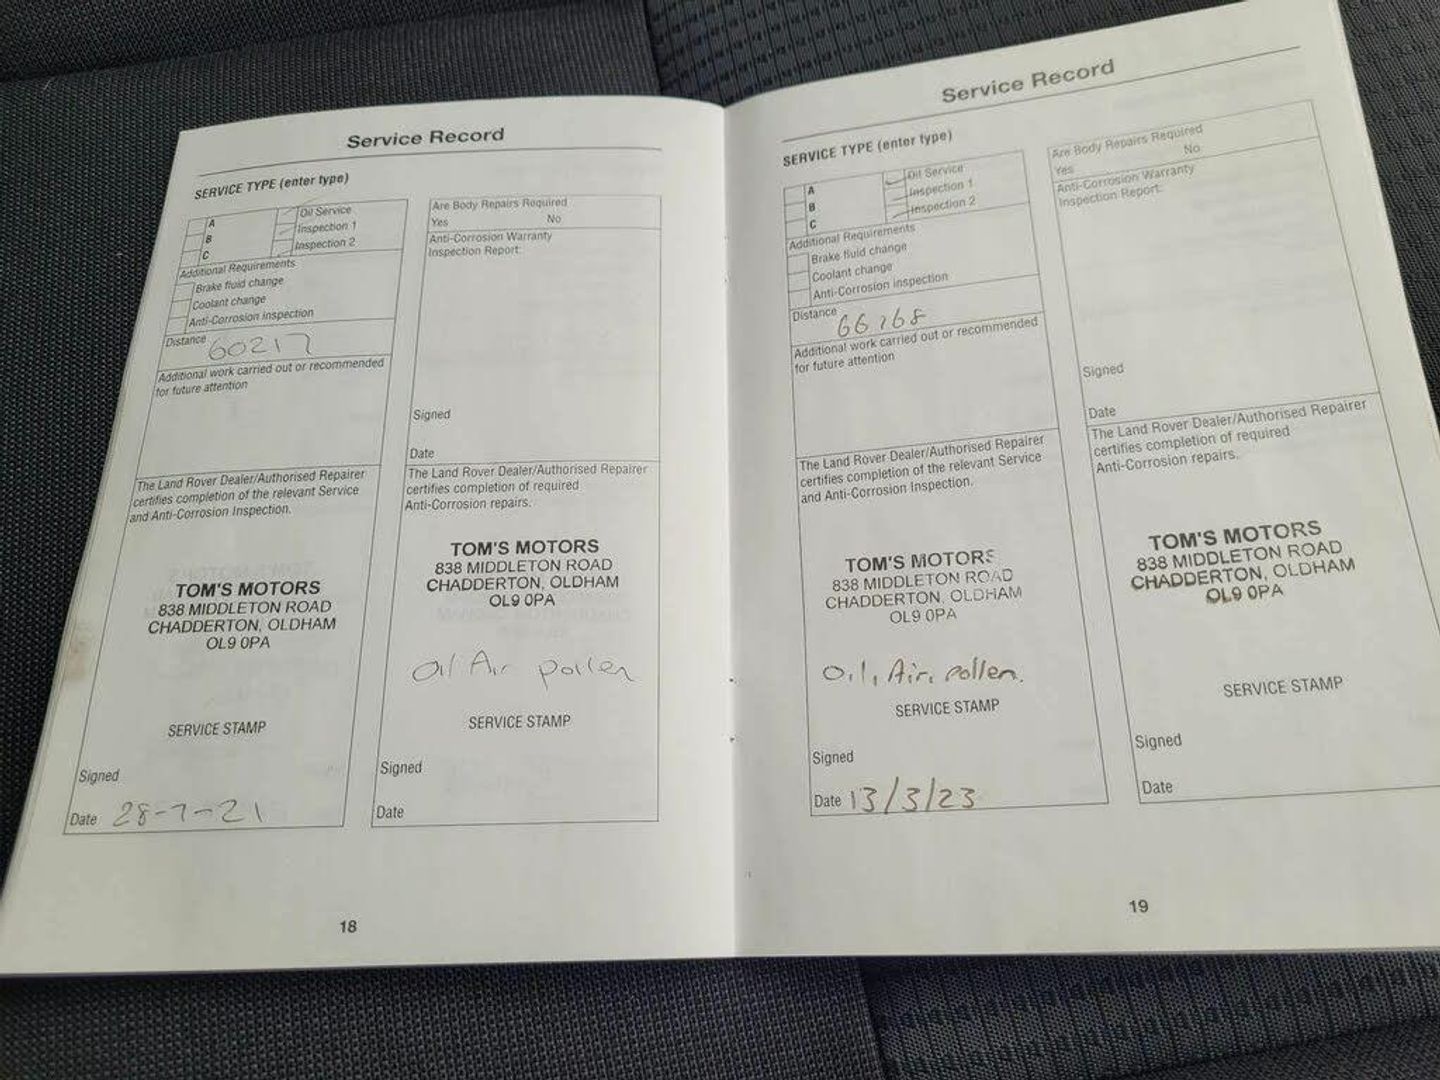 Service Record
SERVICE TYPE (enter type)
A
B
C
Oil Service
Inspection 1
Inspection 2
Additional Requirements
Brake fluid change
Coolant change
Anti-Corrosion inspection
Distance 60217
Additional work carried out or recommended
for future attention
The Land Rover Dealer/Authorised Repairer
certifies completion of the relevant Service
and Anti-Corrosion Inspection.
TOM'S MOTORS
838 MIDDLETON ROAD
CHADDERTON, OLDHAM
OL9 0PA
SERVICE STAMP
Signed
Date 28-7-21
Are Body Repairs Required
Yes No
Anti-Corrosion Warranty
Inspection Report:
Signed
Date
The Land Rover Dealer/Authorised Repairer
certifies completion of required
Anti-Corrosion repairs.
TOM'S MOTORS
838 MIDDLETON ROAD
CHADDERTON, OLDHAM
OL9 0PA
Oil Air pollen
SERVICE STAMP
Signed
Date
18
Service Record
SERVICE TYPE (enter type)
A
B
C
Oil Service
Inspection 1
Inspection 2
Additional Requirements
Brake fluid change
Coolant change
Anti-Corrosion inspection
Distance 66768
Additional work carried out or recommended
for future attention
The Land Rover Dealer/Authorised Repairer
certifies completion of the relevant Service
and Anti-Corrosion Inspection.
TOM'S MOTORS
838 MIDDLETON ROAD
CHADDERTON, OLDHAM
OL9 0PA
Oil, Air, Pollen.
SERVICE STAMP
Signed
Date 13/3/23
Are Body Repairs Required
Yes No
Anti-Corrosion Warranty
Inspection Report:
Signed
Date
The Land Rover Dealer/Authorised Repairer
certifies completion of required
Anti-Corrosion repairs.
TOM'S MOTORS
838 MIDDLETON ROAD
CHADDERTON, OLDHAM
OL9 0PA
SERVICE STAMP
Signed
Date
19